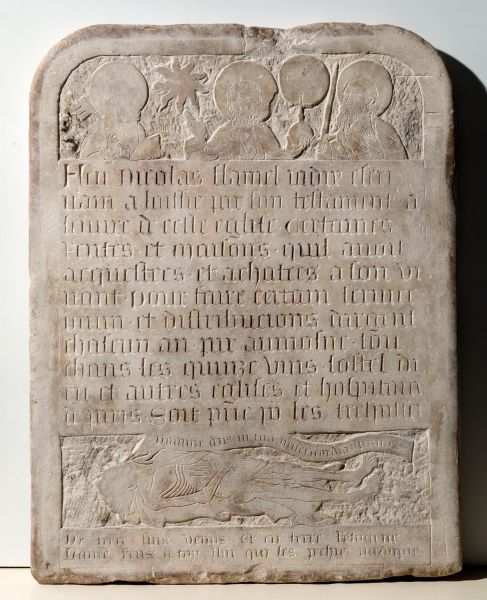 Feu Nicolas flamel jadis escri
uain a laissie par son testament a
leuure de ceste eglise certaines
rentes et maisons quil auoit
acquestees et achatees a son vi
uant pour faire certain seruice
diuin et distribucions dargent
chascun an par aumosne tou
chans les quinze vins lostel di
eu et autres eglises et hospitaux
a paris Soit prie les trespasses
Domine deus in tua misericordia speraui
De terre suis venus et en terre retourne
Lame rens a toy ihu qui les pechies pardonne